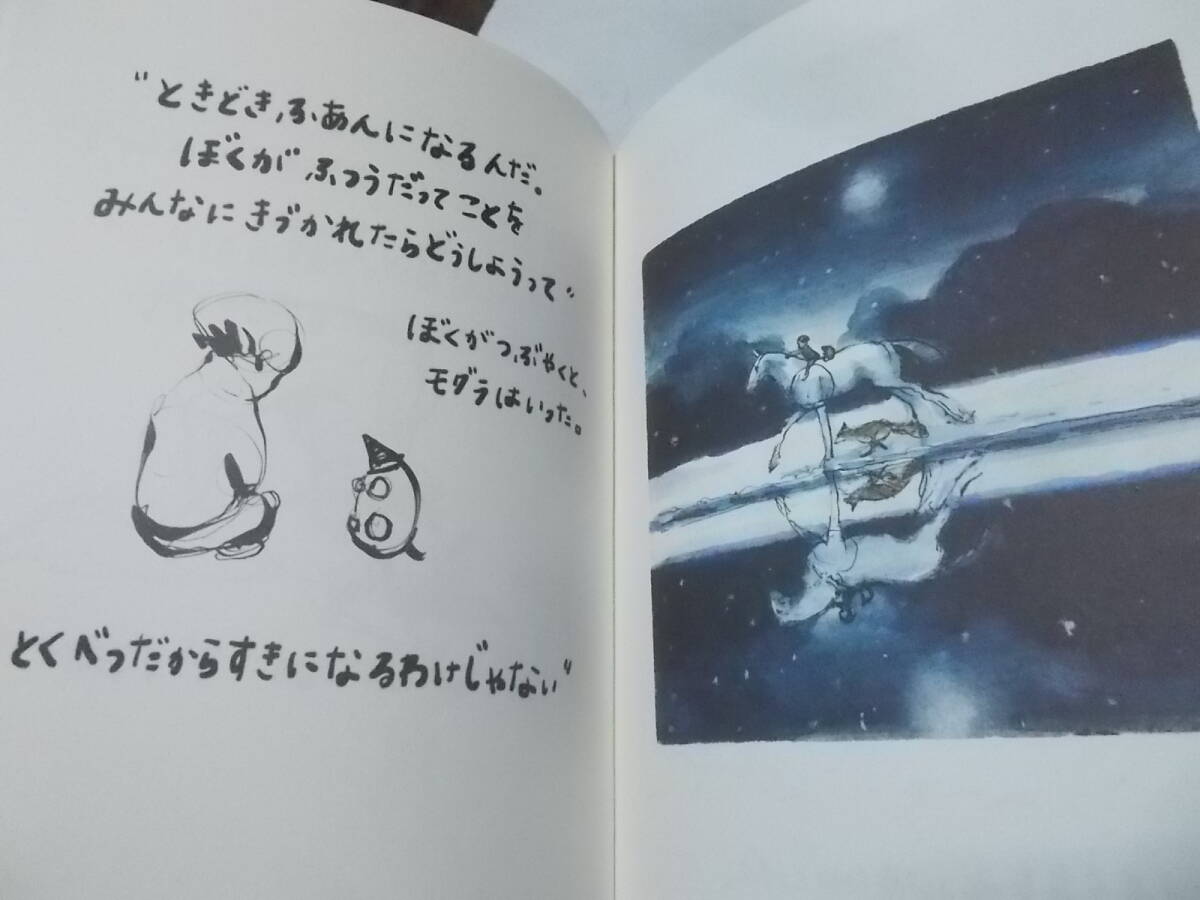 "ときどき、ふあんになるんだ。
ぼくが ふつうだって ことを
みんなに きづかれたらどうしようって"
ぼくがつぶやくと、
モグラはいった。
とくべつだからすきになるわけじゃない"